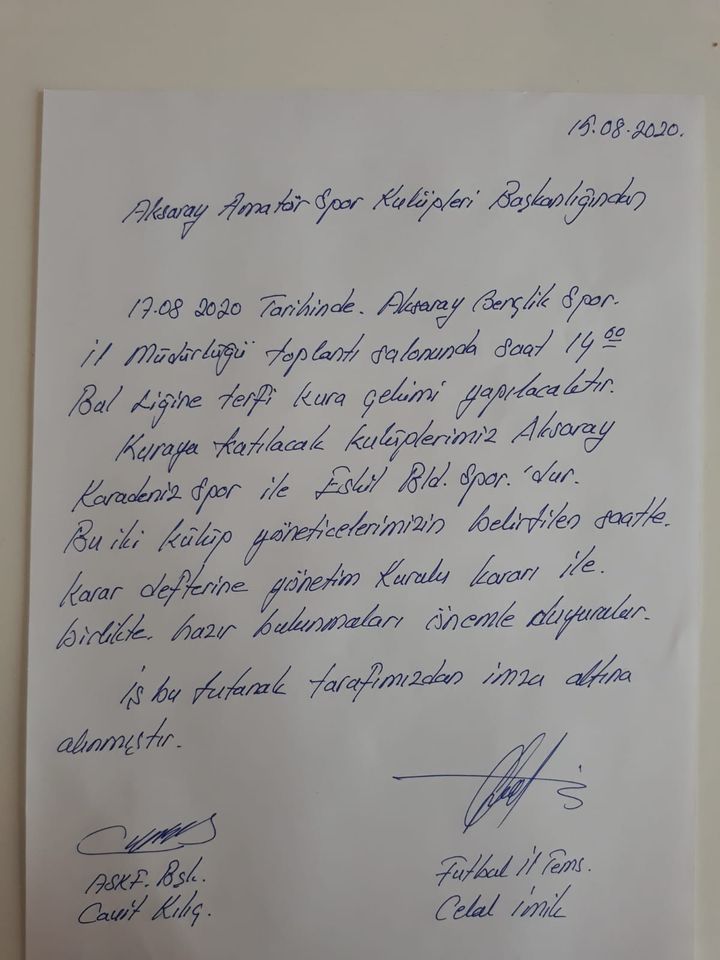 15.08.2020.
Aksaray Amatör Spor Kulüpleri Başkanlığından
17.08 2020 Tarihinde. Aksaray Gençlik Spor.
il Müdürlüğü toplantı salonunda saat 14 00
Bal Ligine terfi kura çekimi yapılacaktır.
Kuraya katılacak kulüplerimiz Aksaray
Karadeniz Spor ile Eskil Bld. Spor.'dur.
Bu iki külüp yöneticelerimizin belirtilen saatte.
karar defterine yönetim Kurulu kararı ile.
birlikte. hazır bulunmaları önemle duyurulur.
iş bu tutanak tarafımızdan imza altına
alınmıştır.
ASKF. Bşk.
Cavit Kılıç.
Futbol il Tems.
Celal İmik